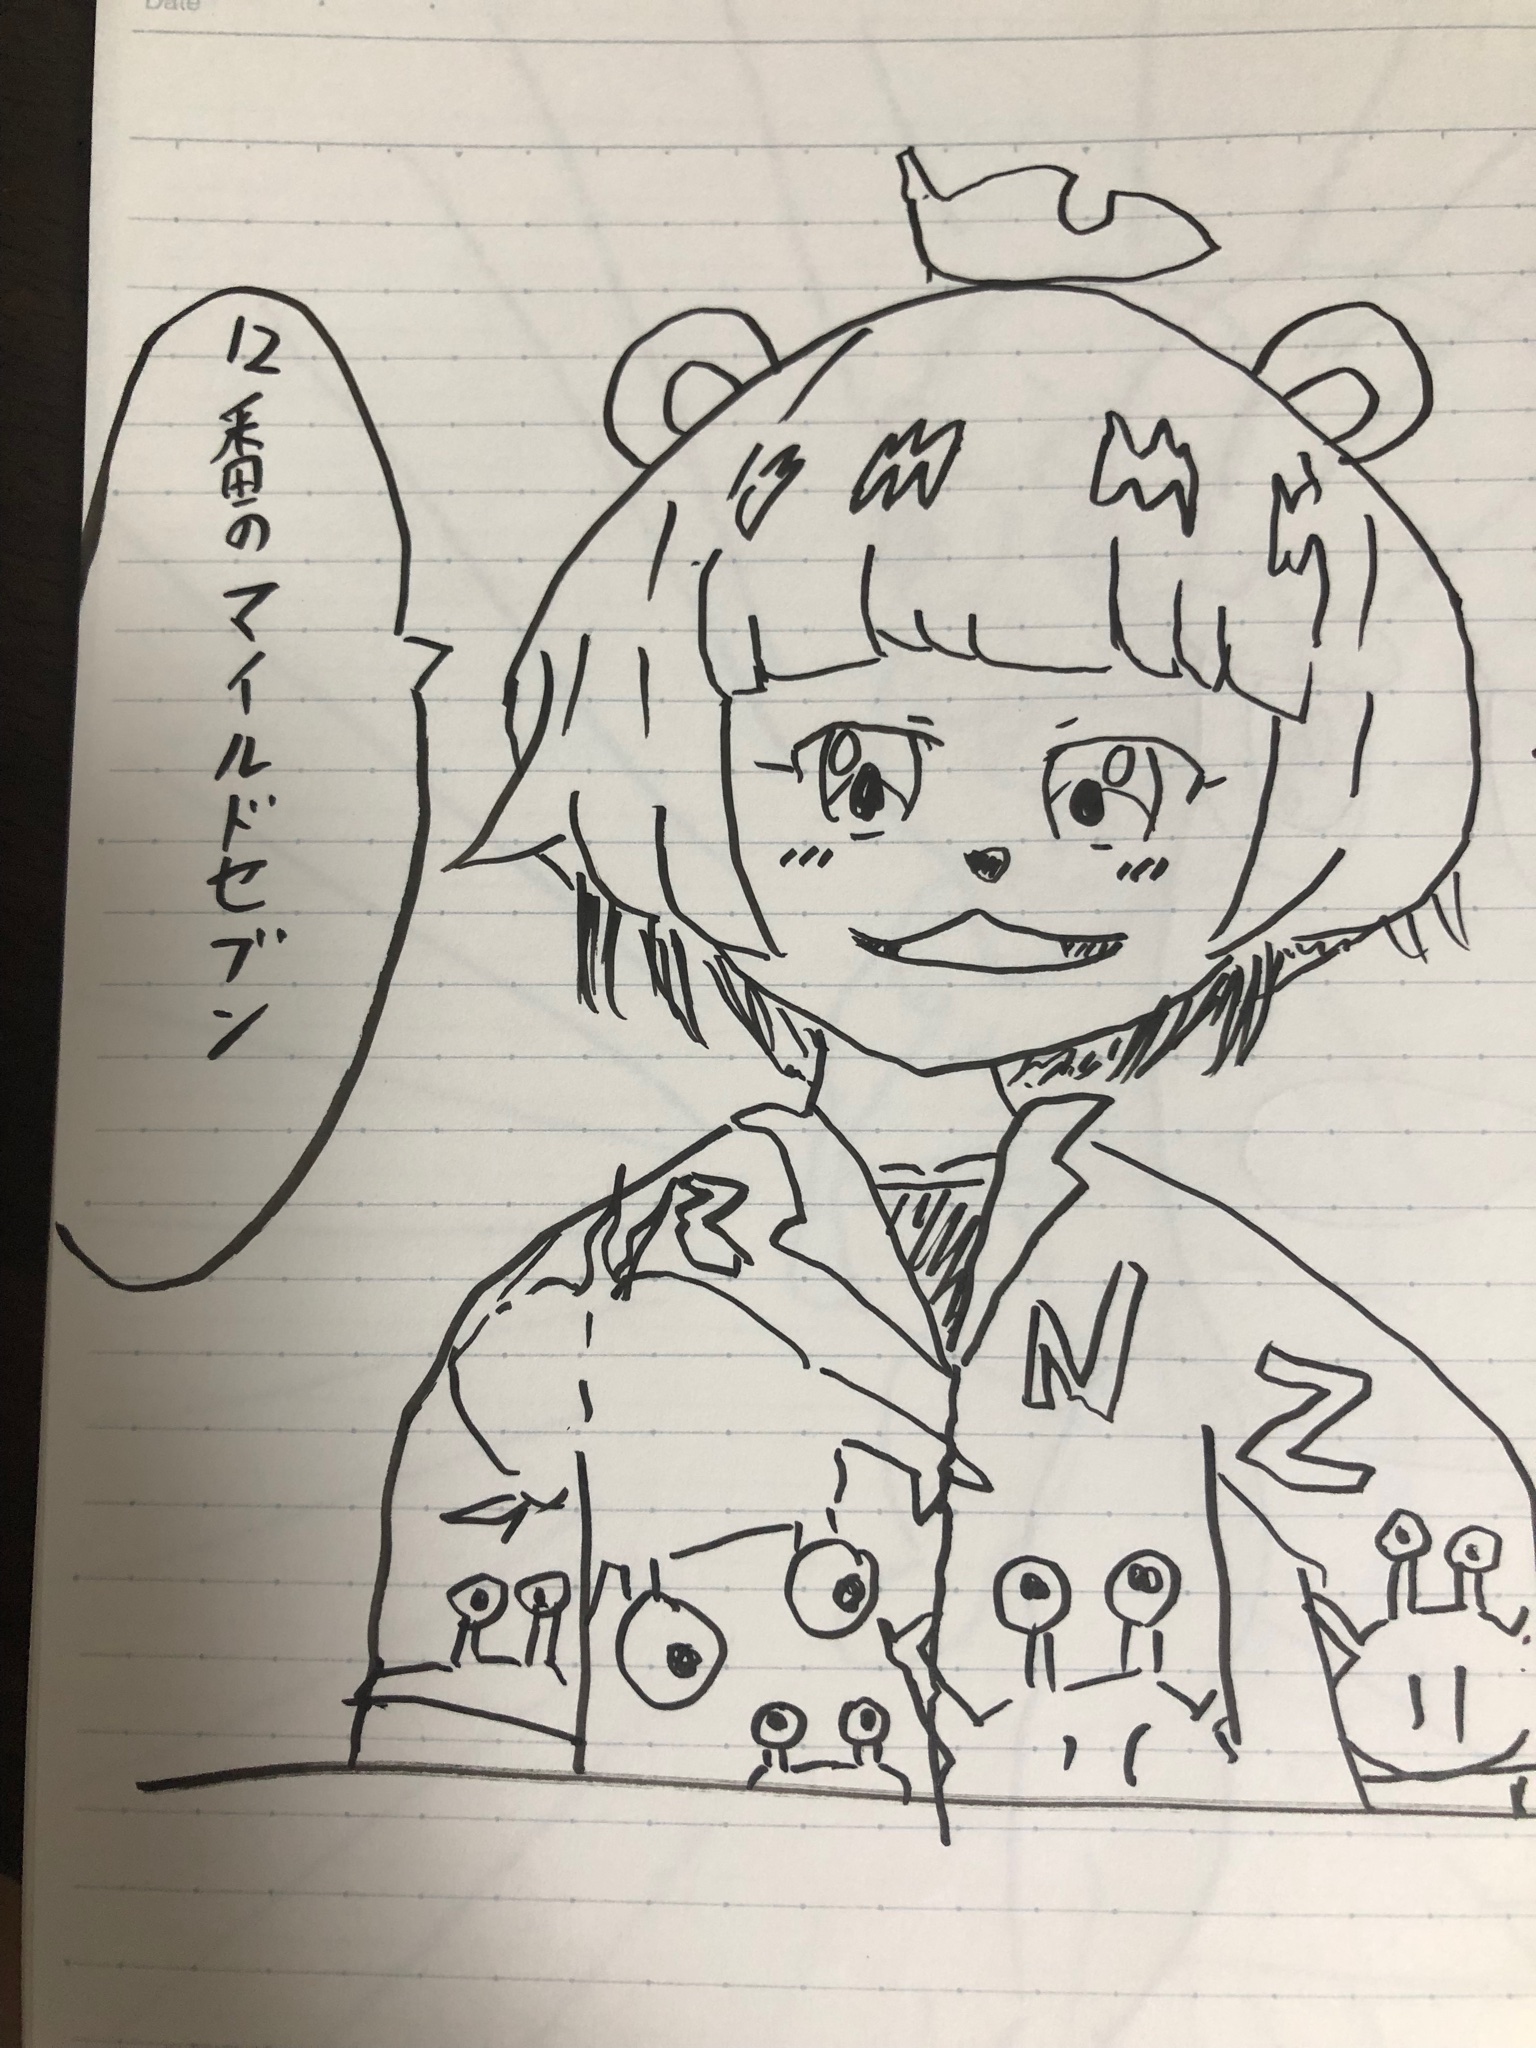 Date
12番のマイルドセブン
N
Z